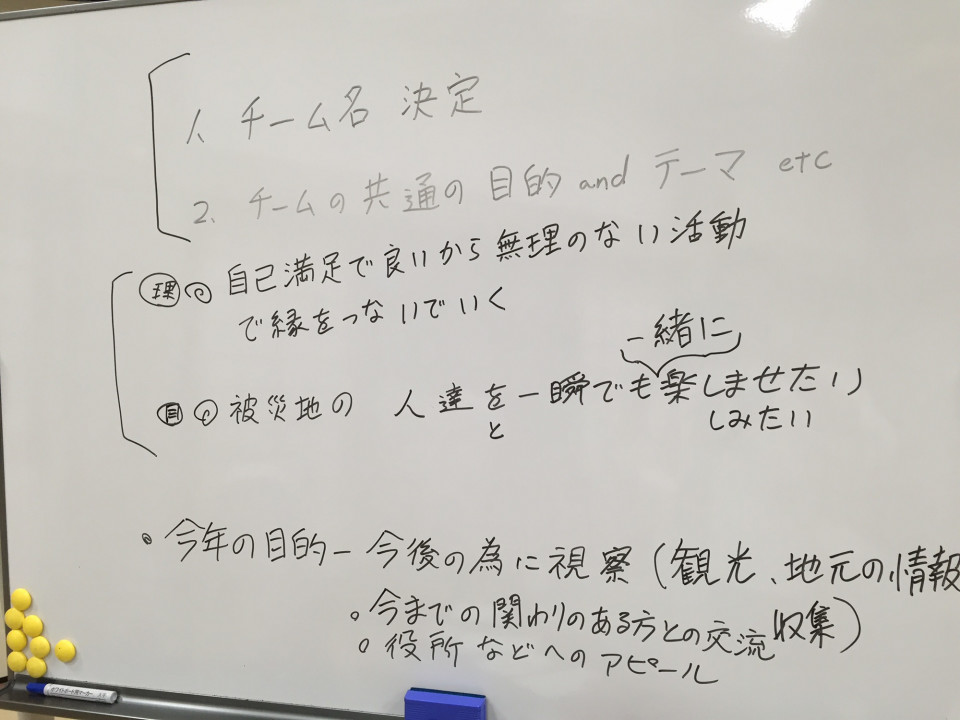 1. チーム名 決定
2. チームの共通の目的 and テーマ etc
理 自己満足で良いから無理のない活動
で縁をつないでいく
一緒に
目 被災地の 人達を一瞬でも楽しませたい
と しみたい
今年の目的ー今後の為に視察(観光、地元の情報
収集)
。今までの関わりのある方との交流
。役所などへのアピール
ホワイトボード用マーカー